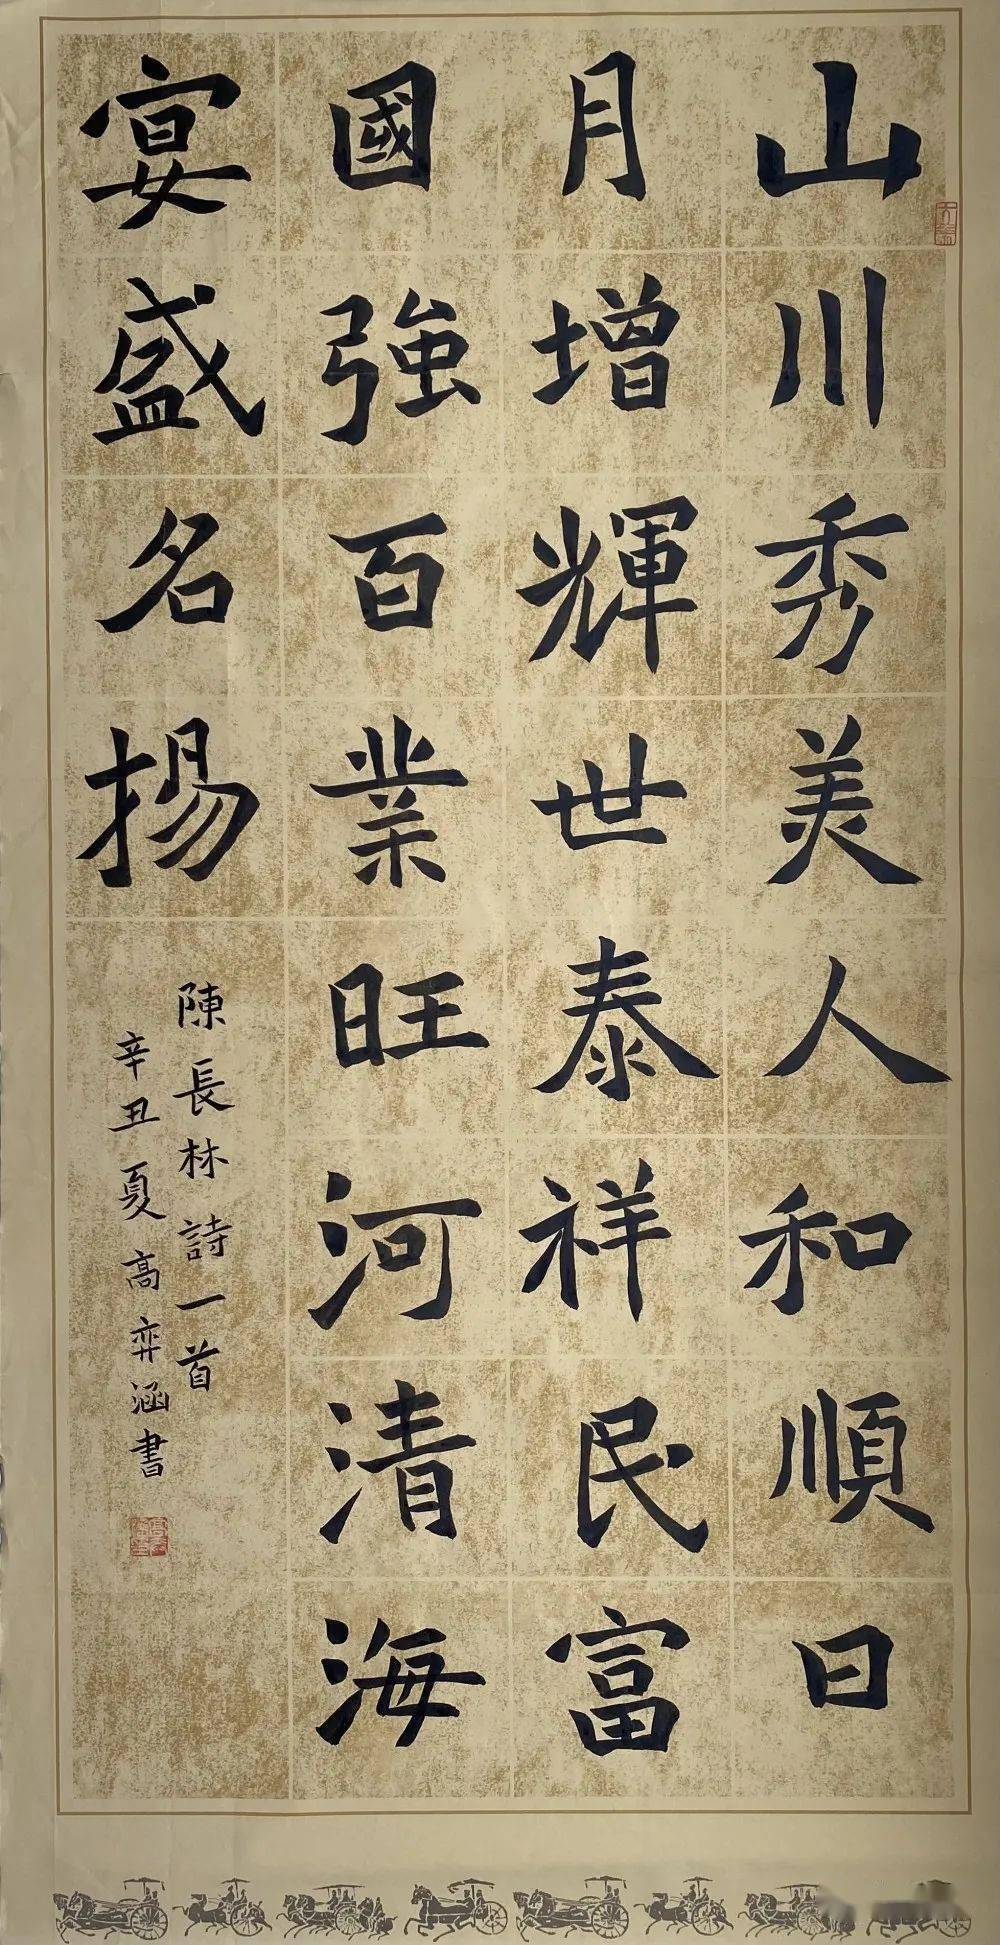 山川秀美人和順日
月增輝世泰祥民富
國強百業旺河清海
宴盛名揚
陳長林詩一首
辛丑夏高弈涵書